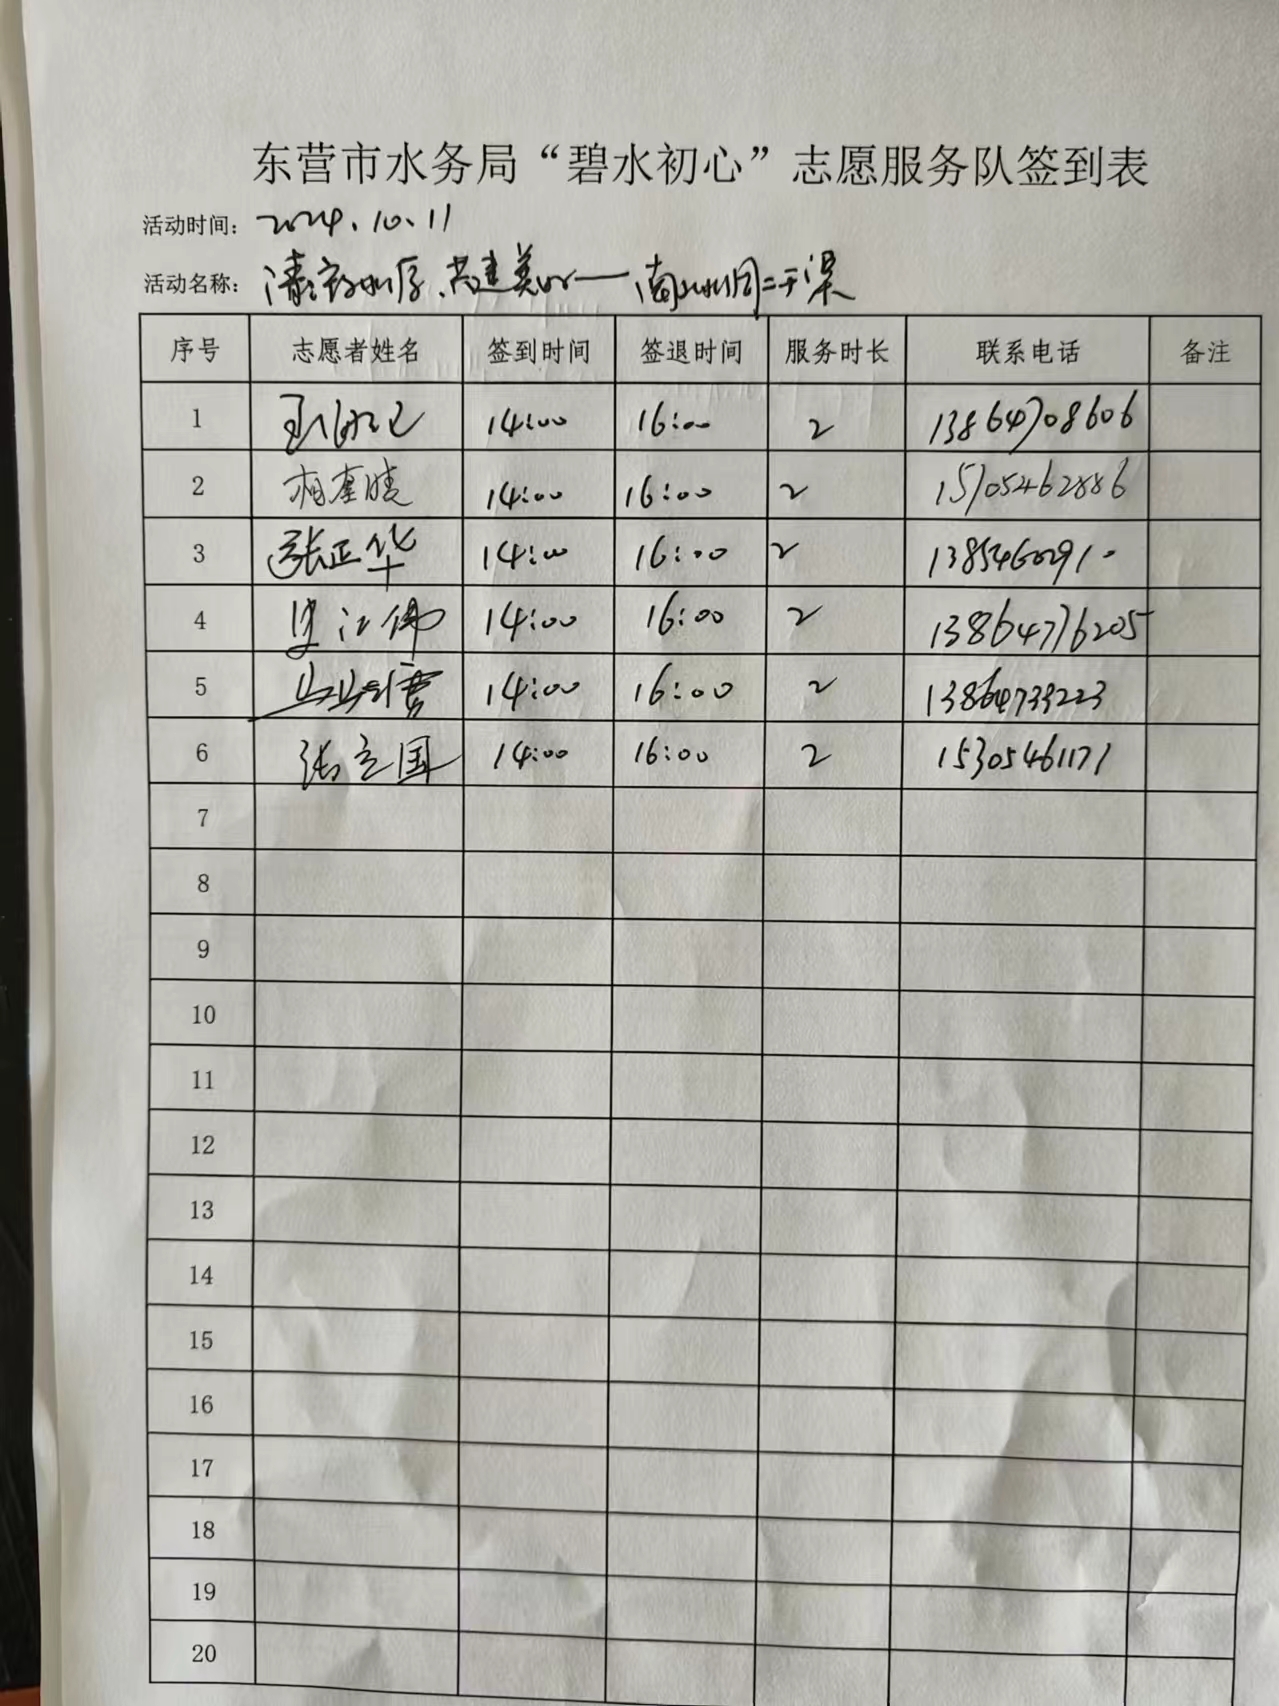 东营市水务局“碧水初心”志愿服务队签到表
活动时间：2024.10.11
活动名称：清 共建美好——南 二干渠
序号 志愿者姓名 签到时间 签退时间 服务时长 联系电话 备注
1 14:00 16:00 2 13864708606
2 14:00 16:00 2 15705462886
3 张正华 14:00 16:00 2 13854602910
4 14:00 16:00 2 13864776205
5 14:00 16:00 2 13864733223
6 张立国 14:00 16:00 2 15305461171
7
8
9
10
11
12
13
14
15
16
17
18
19
20